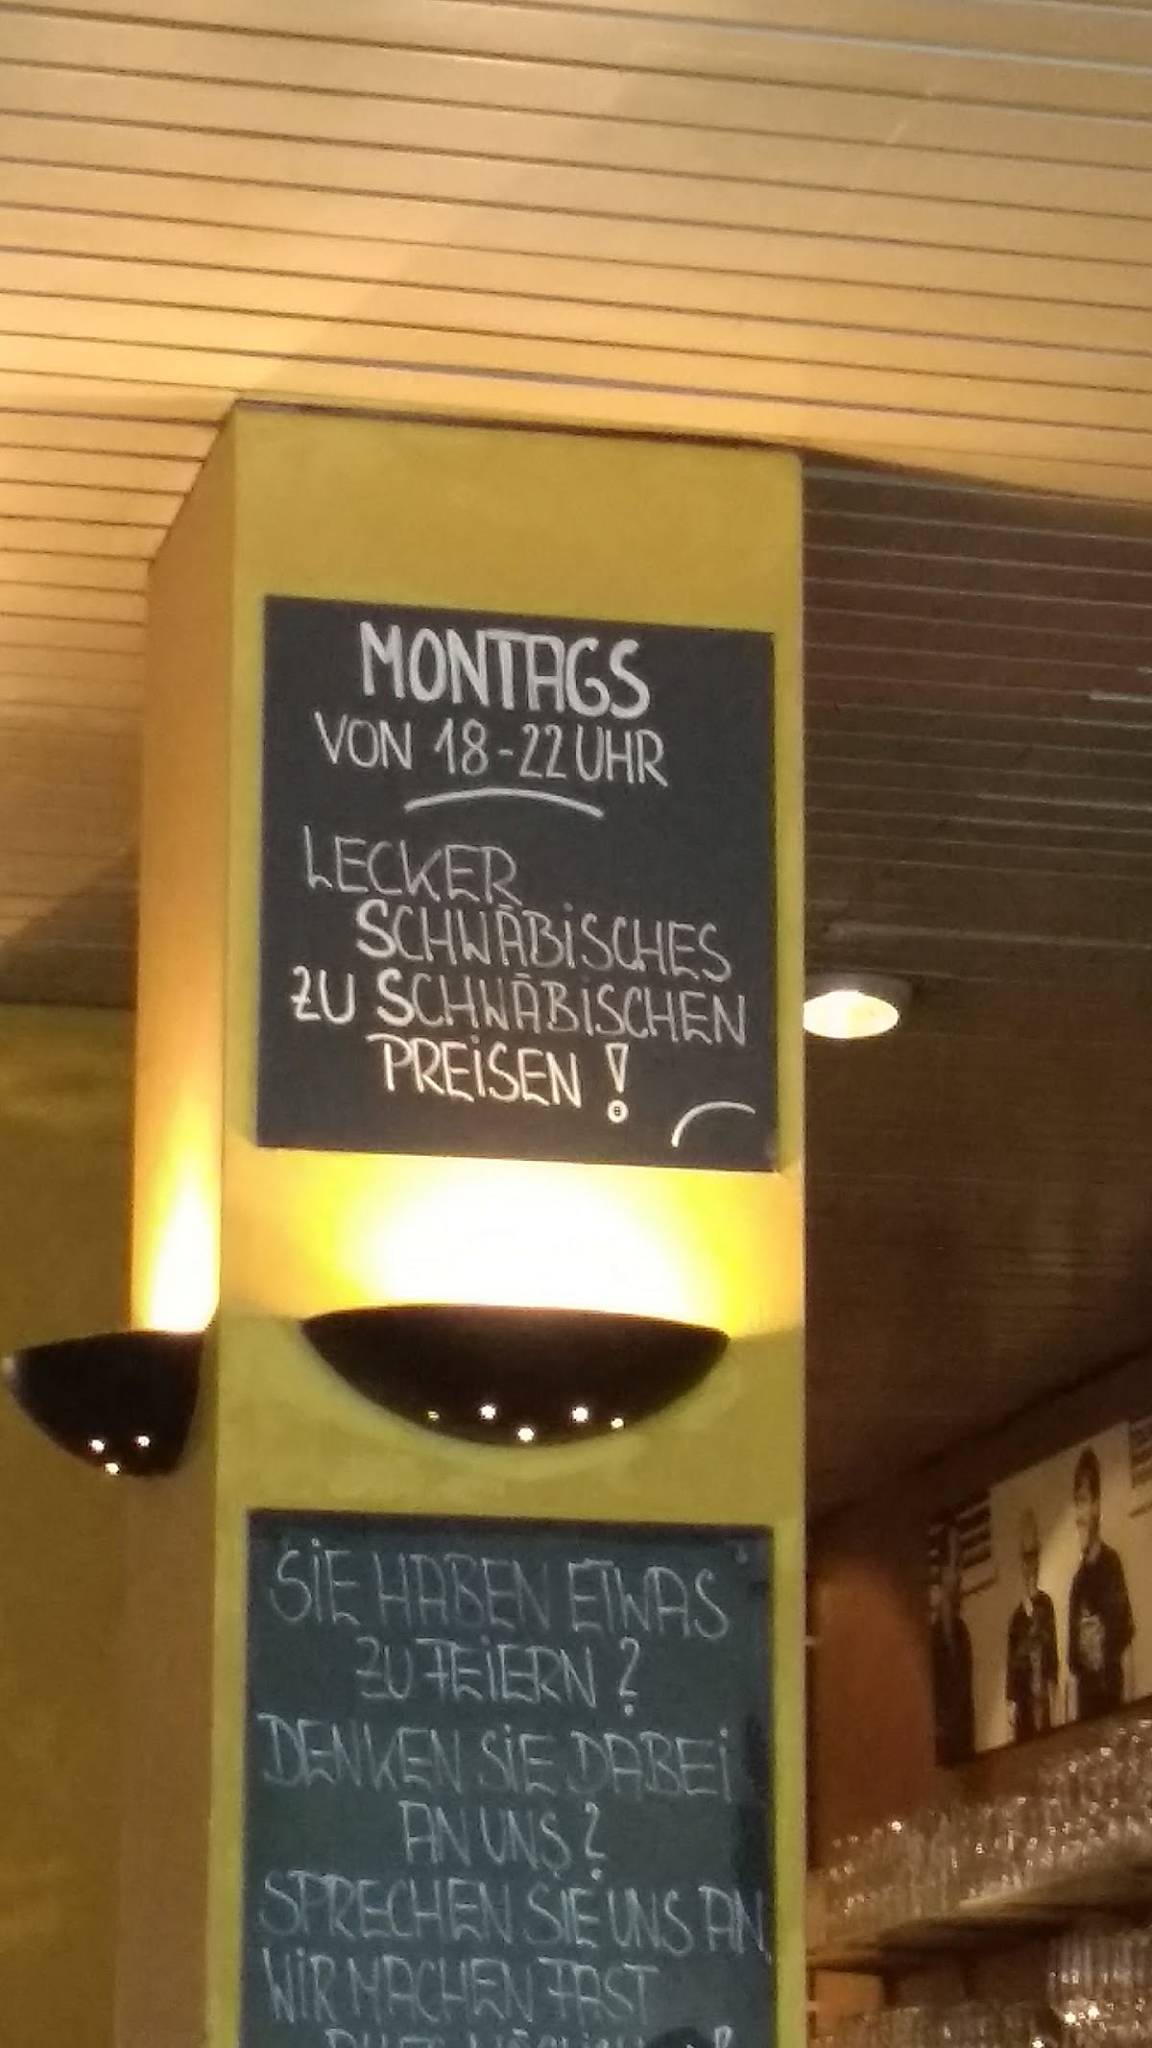 MONTAGS
VON 18-22 UHR
LECKER
SCHWÄBISCHES
ZU SCHWÄBISCHEN
PREISEN!
SIE HABEN ETWAS
ZU FEIERN?
DENKEN SIE DABEI
AN UNS?
SPRECHEN SIE UNS AN,
WIR MACHEN FAST